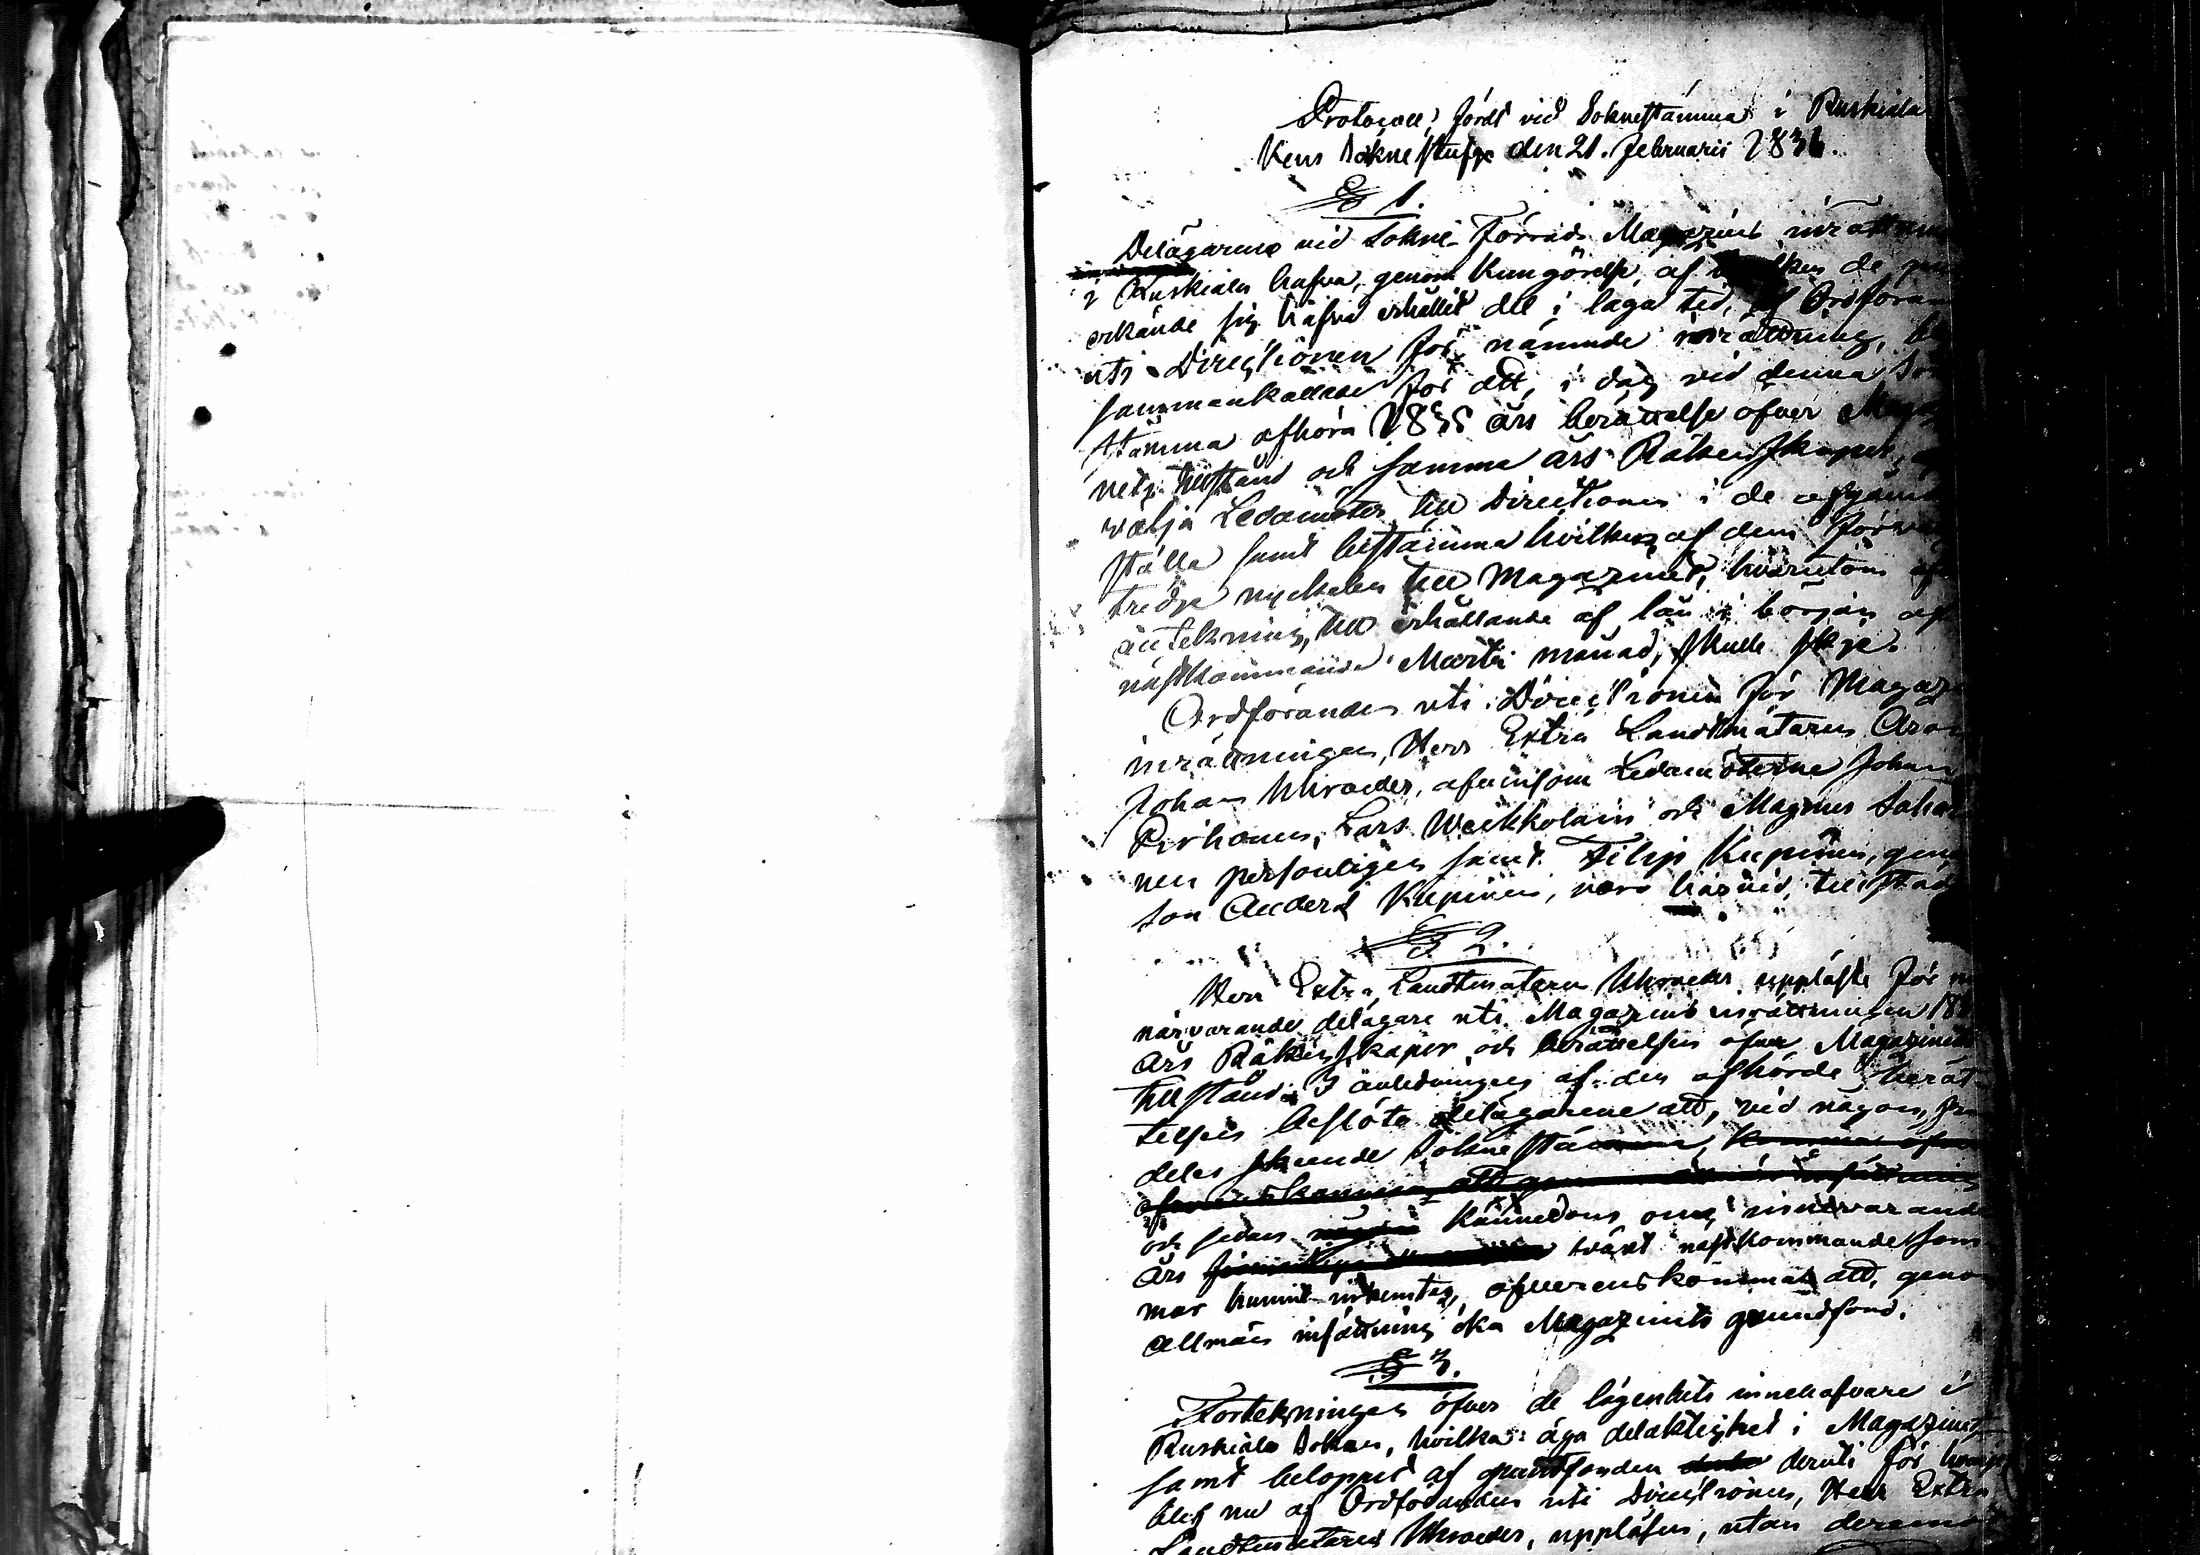 Protocoll, fördt vid Sokne stämma i Ruskiala
Kens Sokne stufga den 21. Februarii 1836.
§ 1.
Delägarene vid Sokne Förråds Magazins inrättnin
i Ruskiala hafva, genom Kungörelse, af hvilken de
erkände sig hafva erhållit del i laga tid, af Ordföran
uti Directionen för nämnde inrättning,
sammankallade för att, i dag vid denna
stämma afhöra 1835 års berättelse öfver Maga
nets tillstånd och samma års Räkenskaper,
välja Ledamöter till Directionen i de afgåend
ställe samt bestämma hvilken af dem
tredje nyckelen till Magazinet, hvarutom
anteckning, till erhållande af lån i början af
nästkommande Martii månad, skulle ske.
Ordföranden uti Directionen för Magaz
inrättningen, Herr Extra Landtmätaren Aron
Johan Uhroeder, äfvensom Ledamöterne Johan
Pirhonen, Lars Weikkolain och Magnus
nen personligen samt Filip Kupinen, gen
son Anders Kupinen, voro härvid, tillstäd
§ 2.
Herr Extra Landtmätaren Uhroeder uppläste för
närvarande delägare uti Magazins inrättningen 18
års Räkenskaper och berättelsen öfver Magazinets
tillstånd. I anledningen af den afhörde berät-
telsen beslöto delägarene att, vid någon,
deles skeende Sokne stämma,
och sedan kännedom om innevarande
års växt nästkommande som
mar hunnit inhemtas, öfverenskomma att, genom
allmän insättning öka Magazinets grundfond.
§ 3.
Förtekningen öfver de lägenhets innehafvare i
Ruskiala Soken, hvilka äga delaktighet i Magazinet,
samt beloppet af grundfonden deruti för
blef nu af Ordföranden uti Directionen, Herr Extra
Landtmätaren Uhroeder, uppläsen, utan